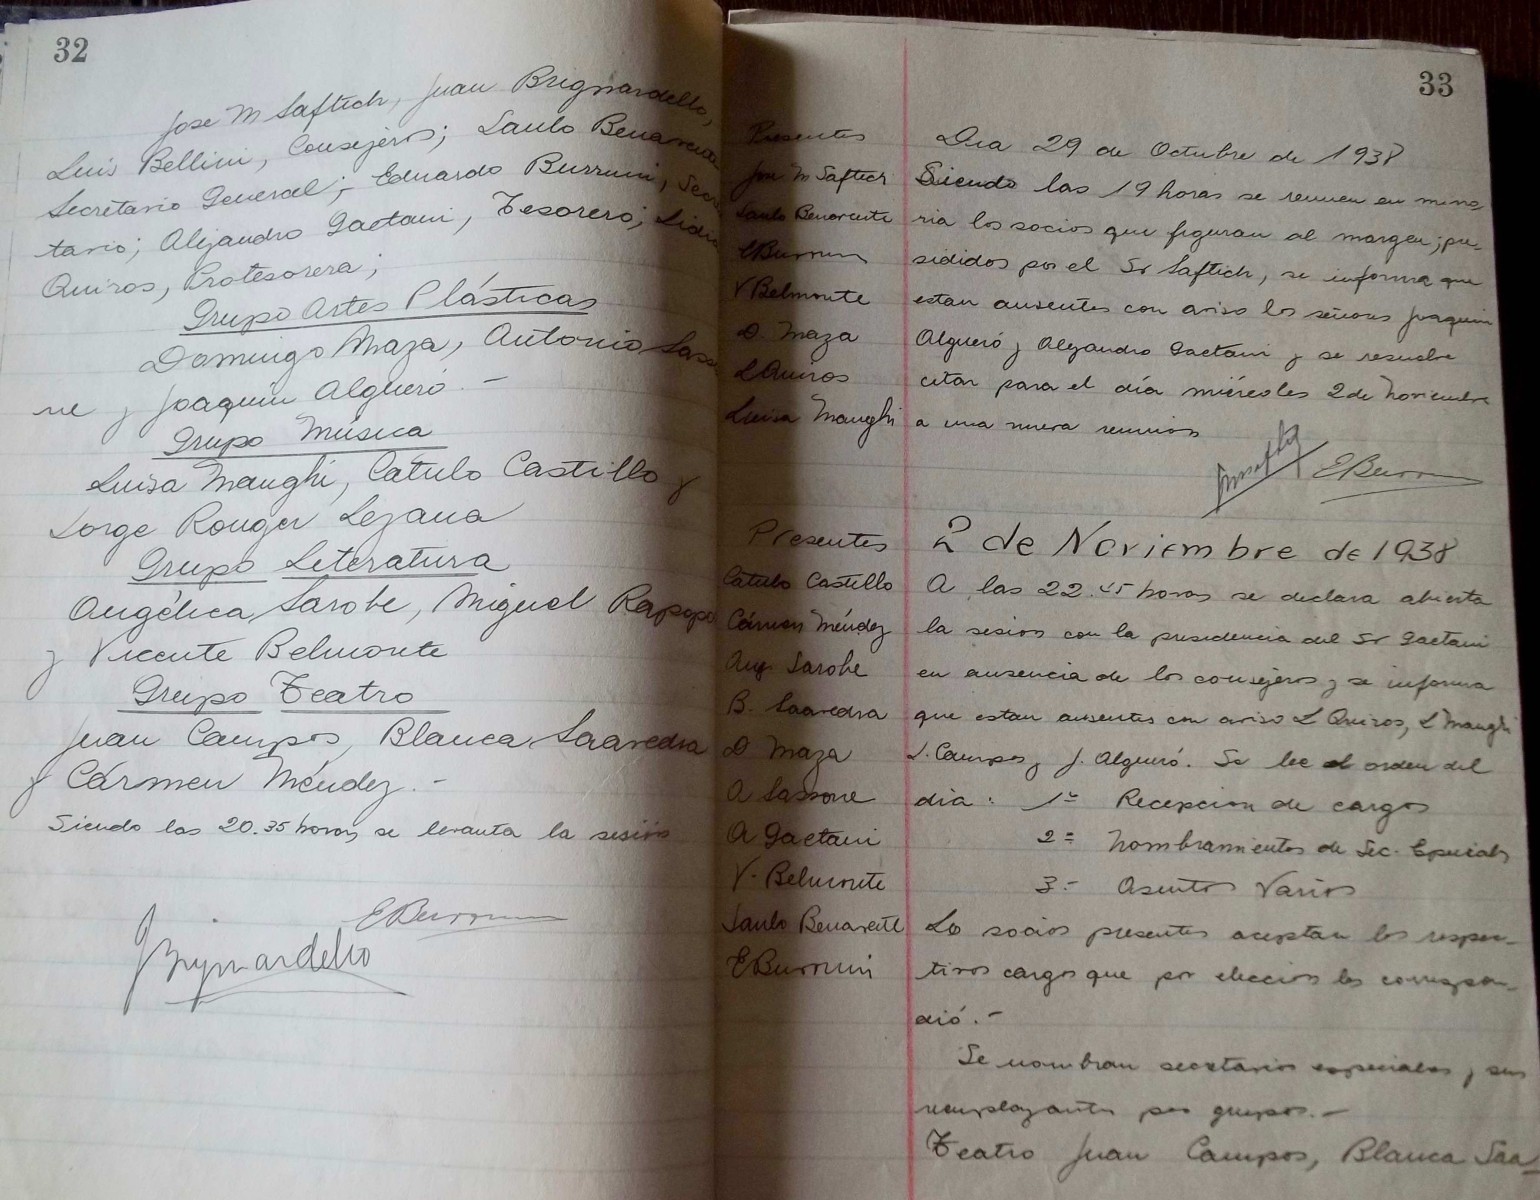 32
Jose M Saftich, Juan Brignardello,
Luis Bellini, Consejeros; Saulo Benavente
Secretario General; Eduardo Burrini, Secre
tario; Alejandro Gaetani, Tesorero; Lidia
Quiros, Protesorera;
Grupo Artes Plásticas
Domingo Maza, Antonio Sasso
ne y Joaquin Algueró.-
Grupo Música
Luisa Manghi, Cátulo Castillo y
Jorge Rouger Lezana
Grupo Literatura
Angélica Sarobe, Miguel Rapopo
y Vicente Belmonte
Grupo Teatro
Juan Campos, Blanca Saavedra
y Cármen Méndez.-
Siendo las 20.35 horas se levanta la sesión
EBurrini
JBrignardello
33
Presentes
Jose M Saftich
Saulo Benavente
EBurrini
V Belmonte
D. Maza
L Quiros
Luisa Manghi
Dia 29 de Octubre de 1938
Siendo las 19 horas se reunen en mino
ria los socios que figuran al margen; pre
sididos por el Sr Saftich, se informa que
estan ausentes con aviso los señores Joaquin
Algueró y Alejandro Gaetani y se resuelve
citar para el día miércoles 2 de Noviembre
a una nueva reunion
EBurrini
Presentes
Catulo Castillo
Cármen Méndez
Ang. Sarobe
B. Saavedra
D Maza
A Sassone
A Gaetani
V. Belmonte
Saulo Benavente
EBurrini
2 de Noviembre de 1938
A las 22.45 horas se declara abierta
la sesion con la presidencia del Sr Gaetani
en ausencia de los consejeros y se informa
que estan ausentes con aviso L Quiros, L Manghi
J. Campos y J. Algueró. Se lee el orden del
dia: 1º Recepcion de cargos
2º Nombramientos de Sec. Especiales
3.- Asuntos Varios
Los socios presentes aceptan los respec-
tivos cargos que por eleccion les correspon-
dió.-
Se nombran secretarios especiales y sus
reemplazantes por grupos.-
Teatro Juan Campos, Blanca Saa-